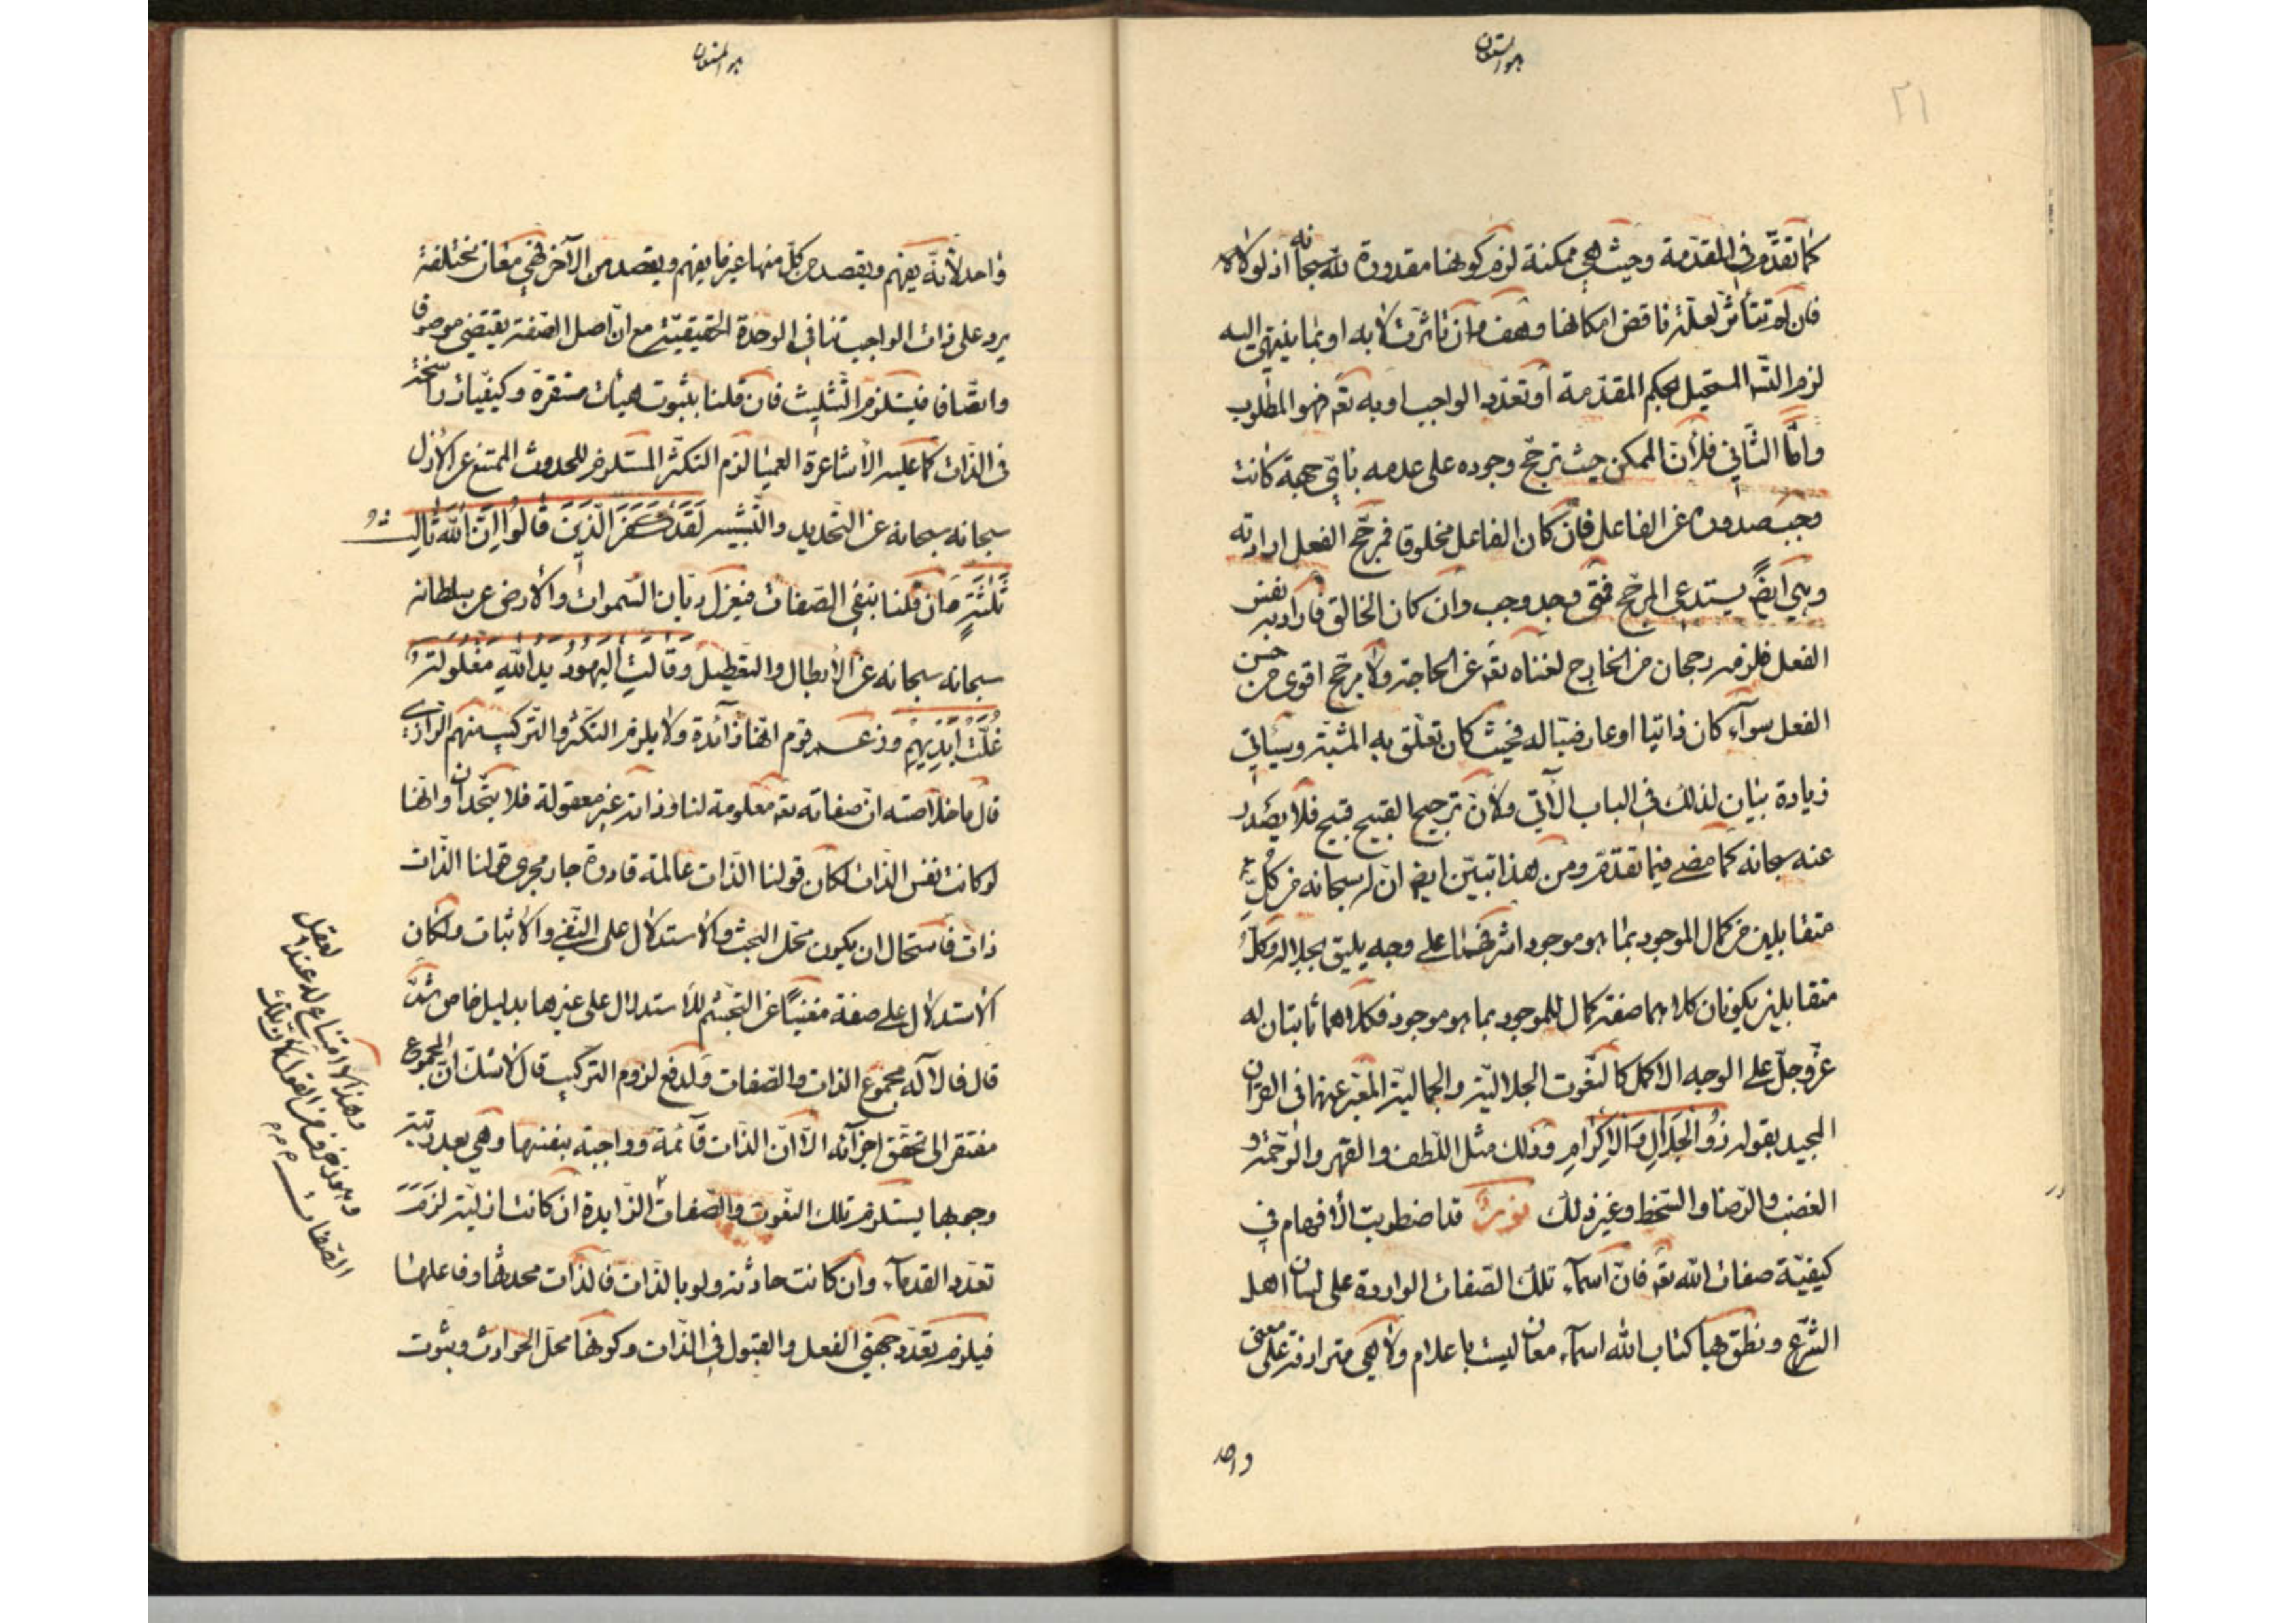 هو المستعان
٢١
كما تقدّم في المقدّمة وحيث هي ممكنة لزم كونها مقدورة لله سبحانه اذ لولاه
فان لم تتأثّر لعلّة ناقض امكانها وهف وان تاثرت لا به او بما ينتهي اليه
لزم التسّه المستحيل بحكم المقدّمة أو تعدّد الواجب او به تعه فهو المطلوب
وامّا الثّاني فلأنّ الممكن حيث ترجّح وجوده على عدمه بايّ جهة كانت
وجب صدوره عن الفاعل فان كان الفاعل مخلوقا فمرجّح الفعل ارادته
وهي ايضً يستدعي المرجّح فمتى وجد وجب وان كان الخالق فارادته نفس
الفعل فلزمه رجحان من الخارج لغناه تعه عن الحاجة ولا مرجّح اقوى من حسن
الفعل سوآء كان ذاتيا او عارضيّا له فحيث كان تعلّق به المشيّة وسيأتي
زيادة بيان لذلك في الباب الآتي ولأنّ ترجيح القبيح قبيح فلا يصدر
عنه سبحانه كما مضى فيما تقدّم ومن هذا تبيّن ايضا انّ له سبحانه من كلّ
متقابلين من كمال الموجود بما هو موجود اشرفهما على وجه يليق بجلاله وكلّ
متقابلين يكونان كلاهما صفة كمال للموجود بما هو موجود فكلاهما ثابتان له
عزّ وجلّ على الوجه الاكمل كالنّعوت الجلاليّة والجماليّة المعبّر عنها في القرآن
المجيد بقوله ذُو الْجَلَالِ وَالْإِكْرَامِ وذلك مثل اللّطف والقهر والرّحمة و
الغضب والرّضا والسّخط وغير ذلك نور قد اضطربت الأفهام في
كيفيّة صفات الله تعه فانّ اسمآء تلك الصّفات الواردة على لسان اهل
الشّرع ونطق بها كتاب الله اسمآء معان ليست باعلام ولا هي مترادفة على معنى
واحد
هو المستعان
واحد لأنّه يفهم ويقصد من كلّ منها غير ما يفهم ويقصد من الآخر فهي معان مختلفة
يرد على ذات الواجب تنافي الوحدة الحقيقيّة مع انّ اصل الصّفة يقتضي موصوفا
واتصّافا فيستلزم التّثليث فان قلنا بثبوت هيئات مستقرة وكيفيّات راسخة
في الذّات كما عليه الأشاعرة العميا لزم التكثّر المستلزم للحدوث الممتنع عن الازل
سبحانه سبحانه عن التّحديد والتّشبيه لَقَدْ كَفَرَ الَّذِينَ قَالُوا إِنَّ اللَّهَ ثَالِثُ
ثَلٰثَةٍ وان قلنا بنفي الصّفات فيعزل ديّان السّموات والأرض عن سلطانه
سبحانه سبحانه عن الأبطال والتّعطيل وَقَالَتِ الْيَهُودُ يَدُ اللَّهِ مَغْلُولَةٌ
غُلَّتْ أَيْدِيهِمْ وزعم قوم انّها زآئدة ولا يلزم التكثّر والتّركيب منهم الرّازي
قال ما خلاصته انّ صفاته تعه معلومة لنا وذاته غير معقولة فلا يتّحدان وانّها
لو كانت نفس الذّات لكان قولنا الذّات عالمة قادرة جار مجرى قولنا الذّات
ذات فاستحال ان يكون محلّ البحث والاستدلال على النّفي والاثبات ولكان
الاستدلال على صفة مغنيًا عن التجشّم للاستدلال على غيرها بدليل خاص ثمّ
قال فالاله مجموع الذات والصّفات ولدفع لزوم التركيب قال لا شكّ انّ المجموع
مفتقر الى تحقّق اجزآئه الّا انّ الذّات قآئمة وواجبة بنفسها وهي بعد رتبة
وجوبها يستلزم تلك النّعوت والصّفات الزّايدة ان كانت ازليّة لزم
تعدّد القدمآء وان كانت حادثة ولو بالذّات فالذّات محدثها وفاعلها
فيلزم تعدّد جهتي الفعل والقبول في الذّات وكونها محلّ الحوادث وثبوت
الصّفات